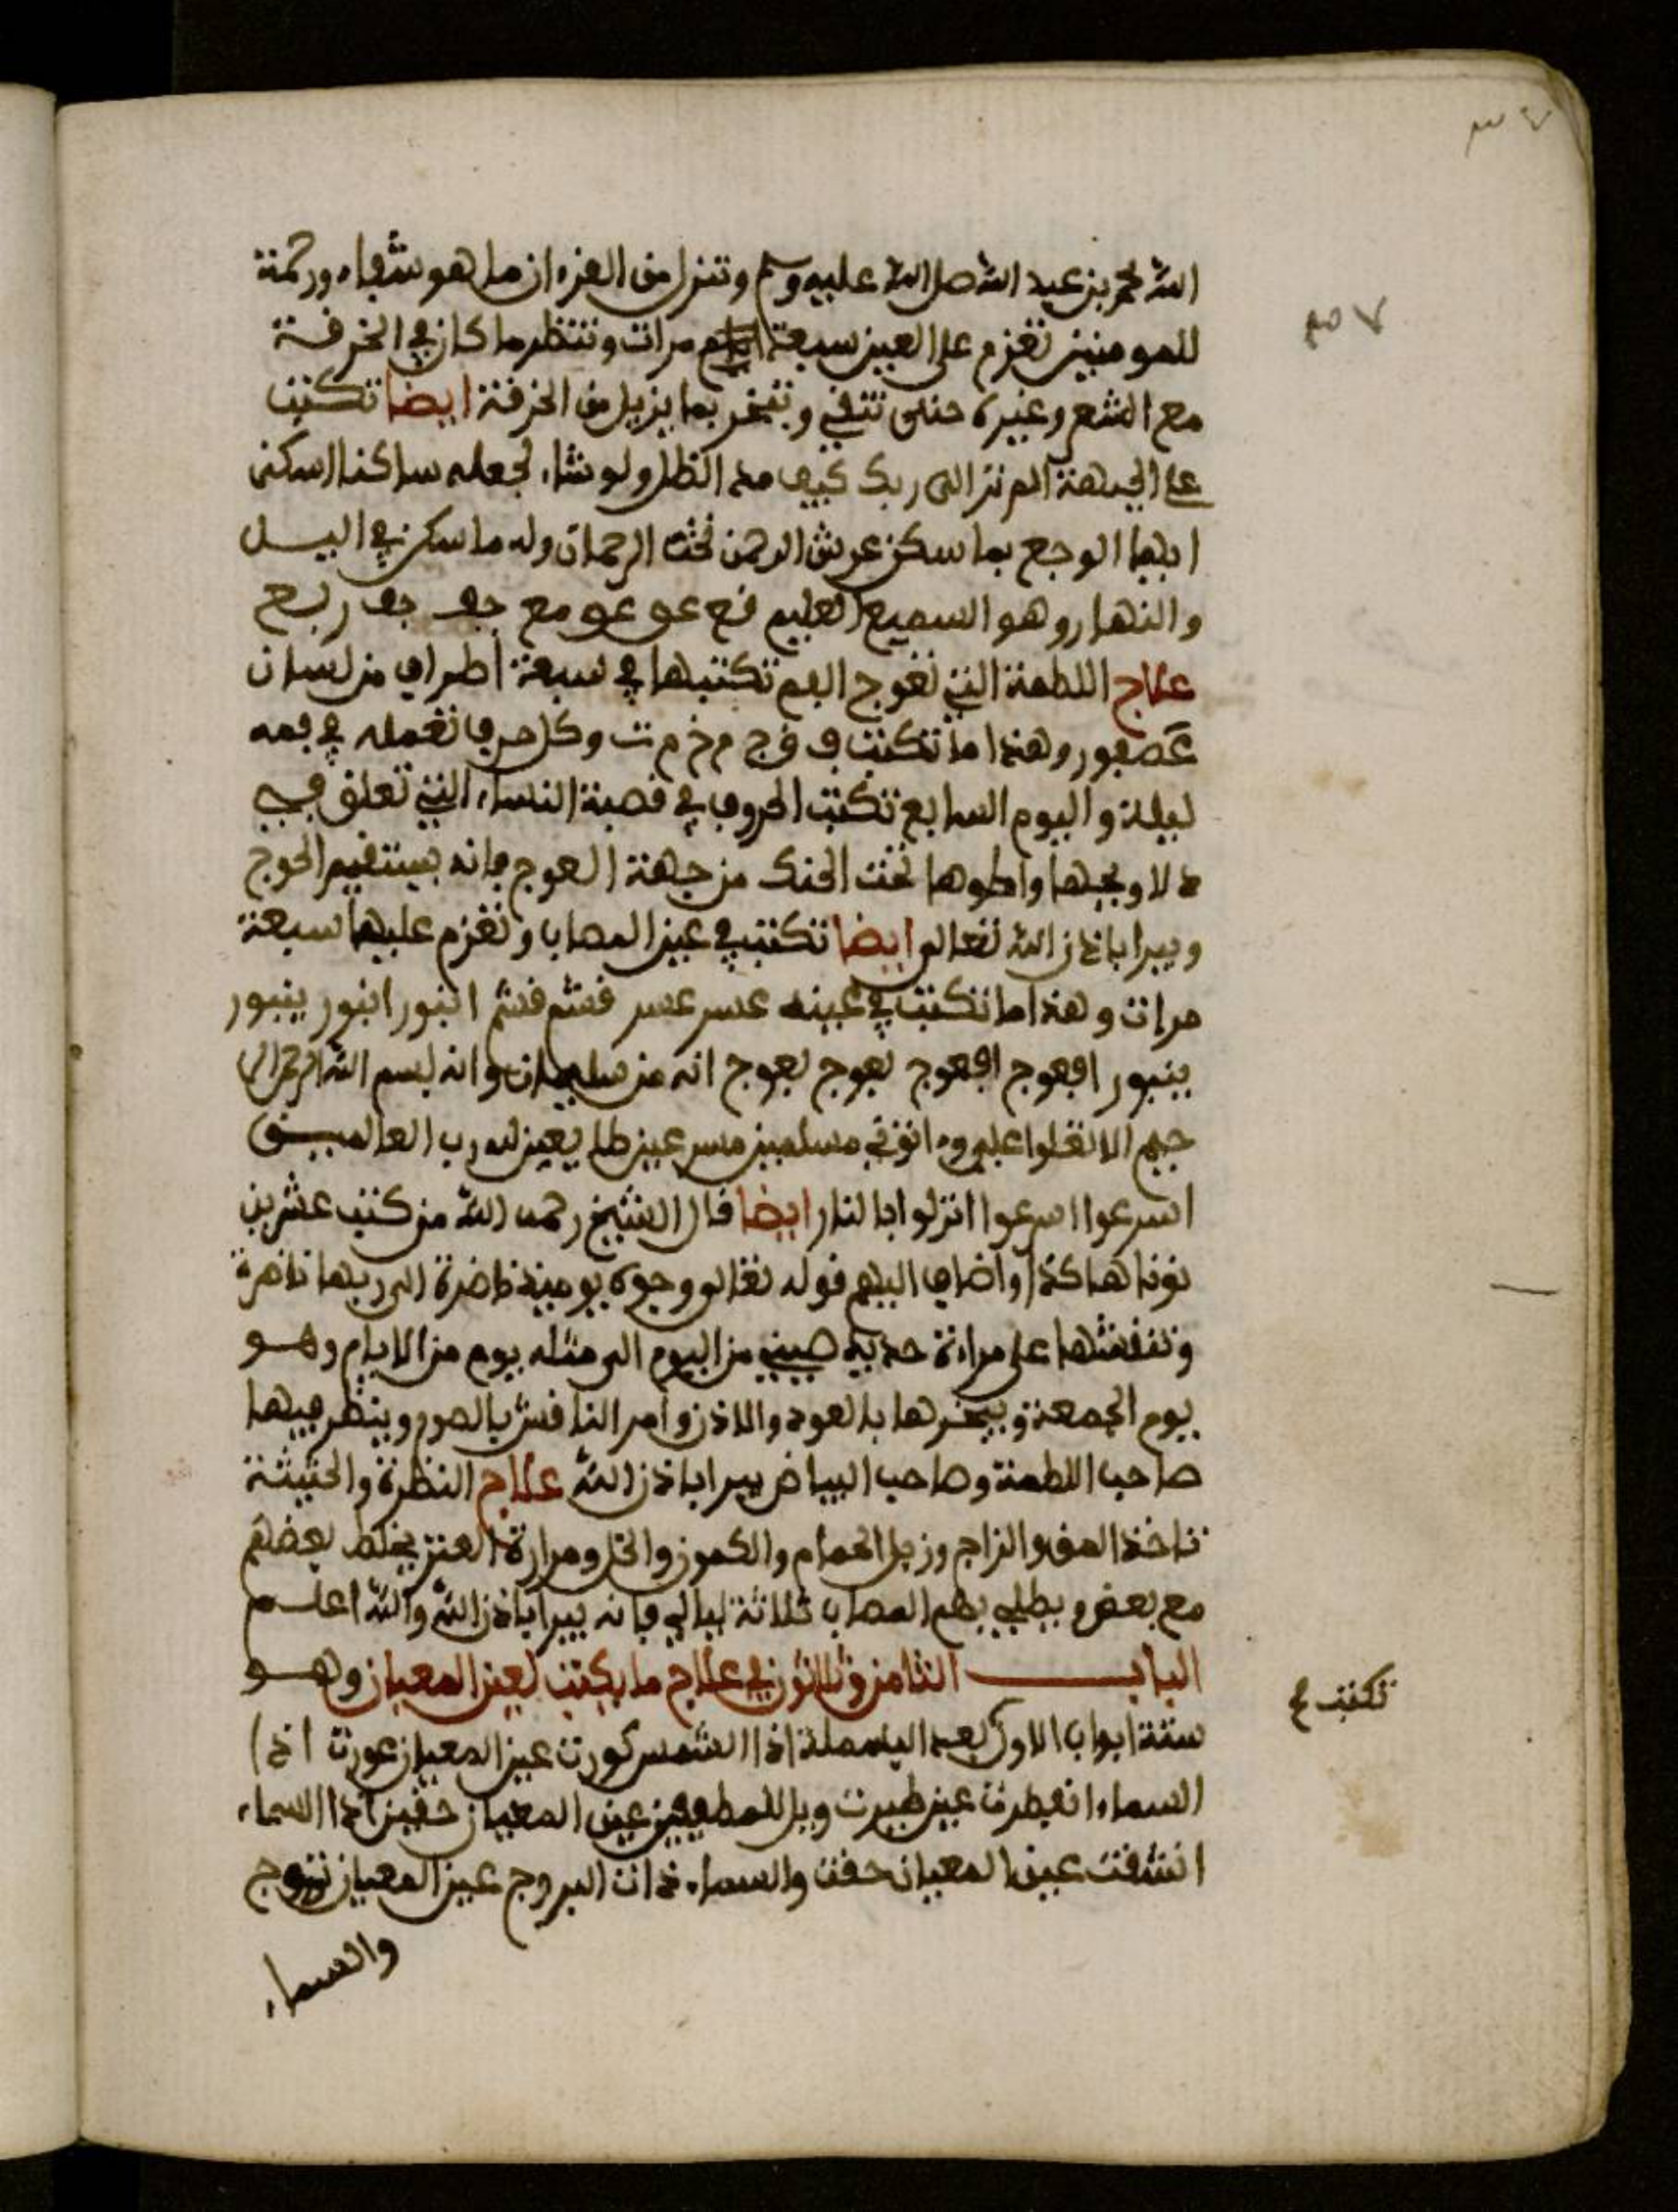 الله محمد بن عبد الله صل الله عليه وسلم وتنزل من القرءان ما هو شفاء ورحمة
للمومنين تعزم على العين سبعة مرات وتنظر ما كان في الخرفة
مع الشعر وغيره حتى تنقى وتبخر بما يزيل من الخرفة ايضا تكتب
على الجبهة الم تر الى ربك كيف مد الظل ولو شاء لجعله ساكنا اسكن
ايها الوجع بما سكن عرش الرحمن تحت الرحمان وله ما سكن في اليل
والنهار وهو السميع العليم فع عو عو مع جف جف ربع
علاج اللطمة التي تعوج الفم تكتبها في سبعة اطراف من لسان
عصفور وهذا ما تكتب ف ق ج م خ م ت وكل حرف تعمله في فمه
ليلة واليوم السابع تكتب الحروف في قصبة النساء التي تعلق في
د لا ويجبها واطوها تحت الحنك من جهة العوج فانه يستقيم الحوج
ويبرا باذن الله تعالى ايضا تكتب في عين المصاب وتعزم عليها سبعة
مرات وهذا ما تكتب في عينه عسر عسر فشم فشم ابنور ابنور ينبور
ينبور افعوج افعوج يعوج يعوج انه من سليمان وانه بسم الله الرحمن الر
حيم الا تعلوا علي وءاتوني مسلمين مسرعين طايعين لله رب العالمين
اسرعوا اسرعوا انزلوا بالنار ايضا قال الشيخ رحمه الله من كتب عشرين
نونا هاكذا واضاف اليهم قوله تعالى وجوه يومئذ ناضرة الى ربها ناظرة
وتنقشها على مراءة حديد صيني من اليوم الى مثله يوم من الايام وهو
يوم الجمعة ويبخرها بالعود والاذن وامر الناقش بالصوم وينظر فيها
صاحب اللطمة وصاحب البياض يبرا باذن الله علاج النظرة والخبيثة
تاخذ المقل والزاج وزبل الحمام والكمون والخل ومرارة العنز يخلط بعضهم
مع بعض ويطلي بهم المصاب ثلاثة ليالي فانه يبرا باذن الله والله اعلم
الباب الثامن وثلاثون في علاج ما يكتب لعين المعيان وهو
ستة ابواب الاول بعد البسملة اذا الشمس كورت عين المعيان عورت اذا
السماء انفطرت عين طيرت ويل للمطففين عين المعيان حقين اذا السماء
انشقت عين المعيان حقت والسماء ذات البروج عين المعيان تهوج
والسماء
تكتب ع